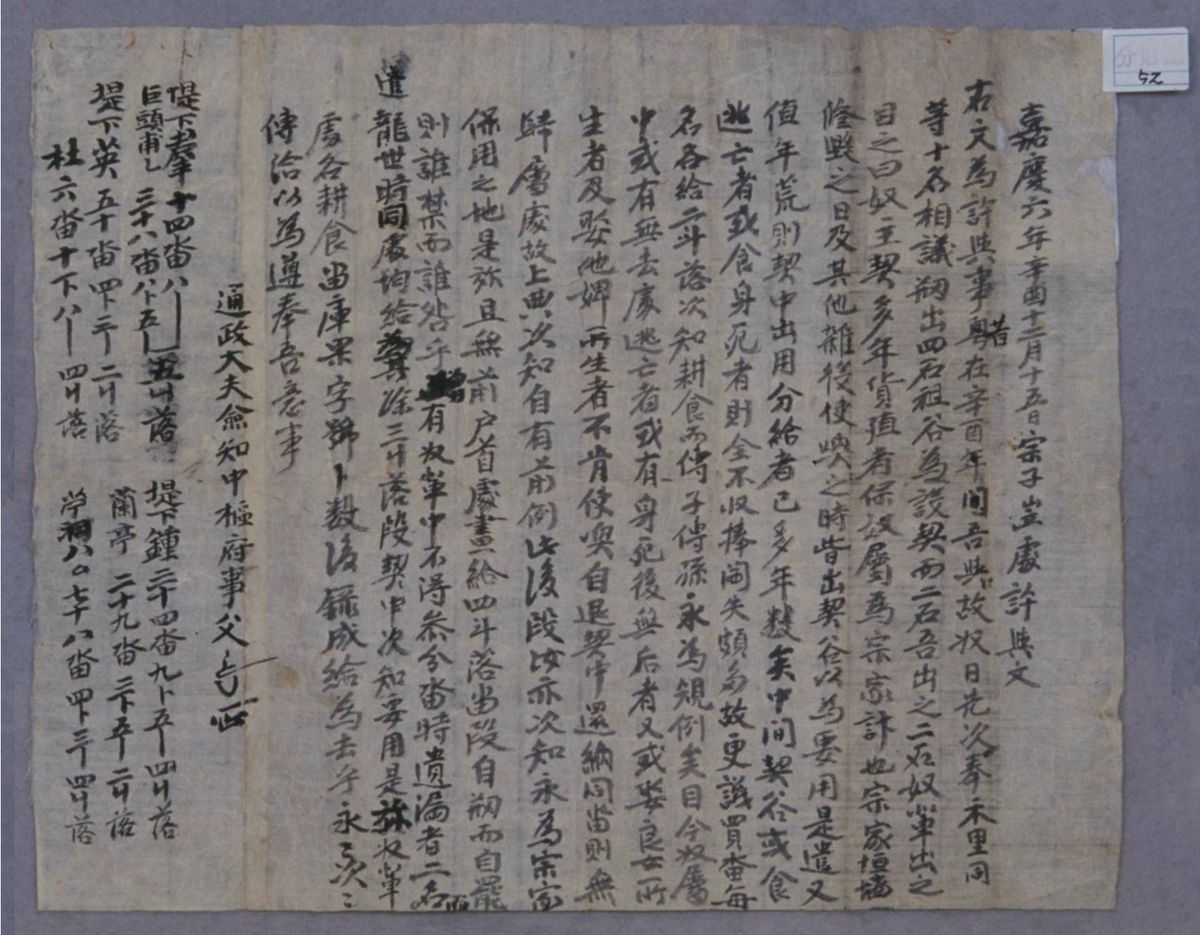 嘉慶六年辛酉十二月十五日宗子 處許與文
右文爲許與事粤昔在辛酉年間吾與故奴日先次奉禾里同
等十名相議刱出四石租谷爲設契而二石吾出之二石奴輩出之
目之曰奴主契多年貨殖者保奴屬爲宗家計也宗家垣墻
修毀之日及其他雜役使喚之時皆出契谷以爲要用是遣又
值年荒則契中出用分給者已多年數矣中間契谷或食
逃亡者或食身死者則全不收捧閪失頗多故更議買畓每
名各給二斗落次知耕食而傳子傳孫永爲規例矣目今奴屬
中或有無去處逃亡者或有身死後無后者又或娶良女所
生者及娶他婢所生者不肯使喚自退契中還納同畓則無
歸屬處故上典次知自有前例此後段汝亦次知永爲宗家
保用之地是旀且無前戶首處畫給四斗落畓段自刱而自罷
則誰禁而誰咎乎 有奴輩中不得參分畓時遺漏者二名
龍世時同處均給 其餘三斗落段契中次知要用是旀奴輩
處各耕食畓庫果字號卜數後錄成給爲去乎永永次次
傳洽以爲遵奉吾意事
遣
通政大夫僉知中樞府事父
堤下 十四畓
巨頭甫 三十八畓 五斗落
堤下英五十畓四卜 二斗落
杜六畓十卜 四斗落
堤下鍾二十四畓九卜五 四斗落
蘭亭二十九畓 二斗落
七十八畓四卜三 四斗落
分財
52